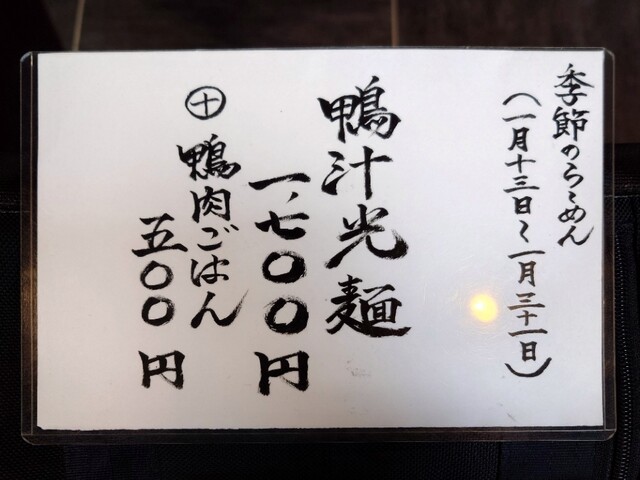 季節のらーめん
(一月十三日〜一月三十一日)
鴨汁光麺
一、七〇〇円
㊉鴨肉ごはん
五〇〇円